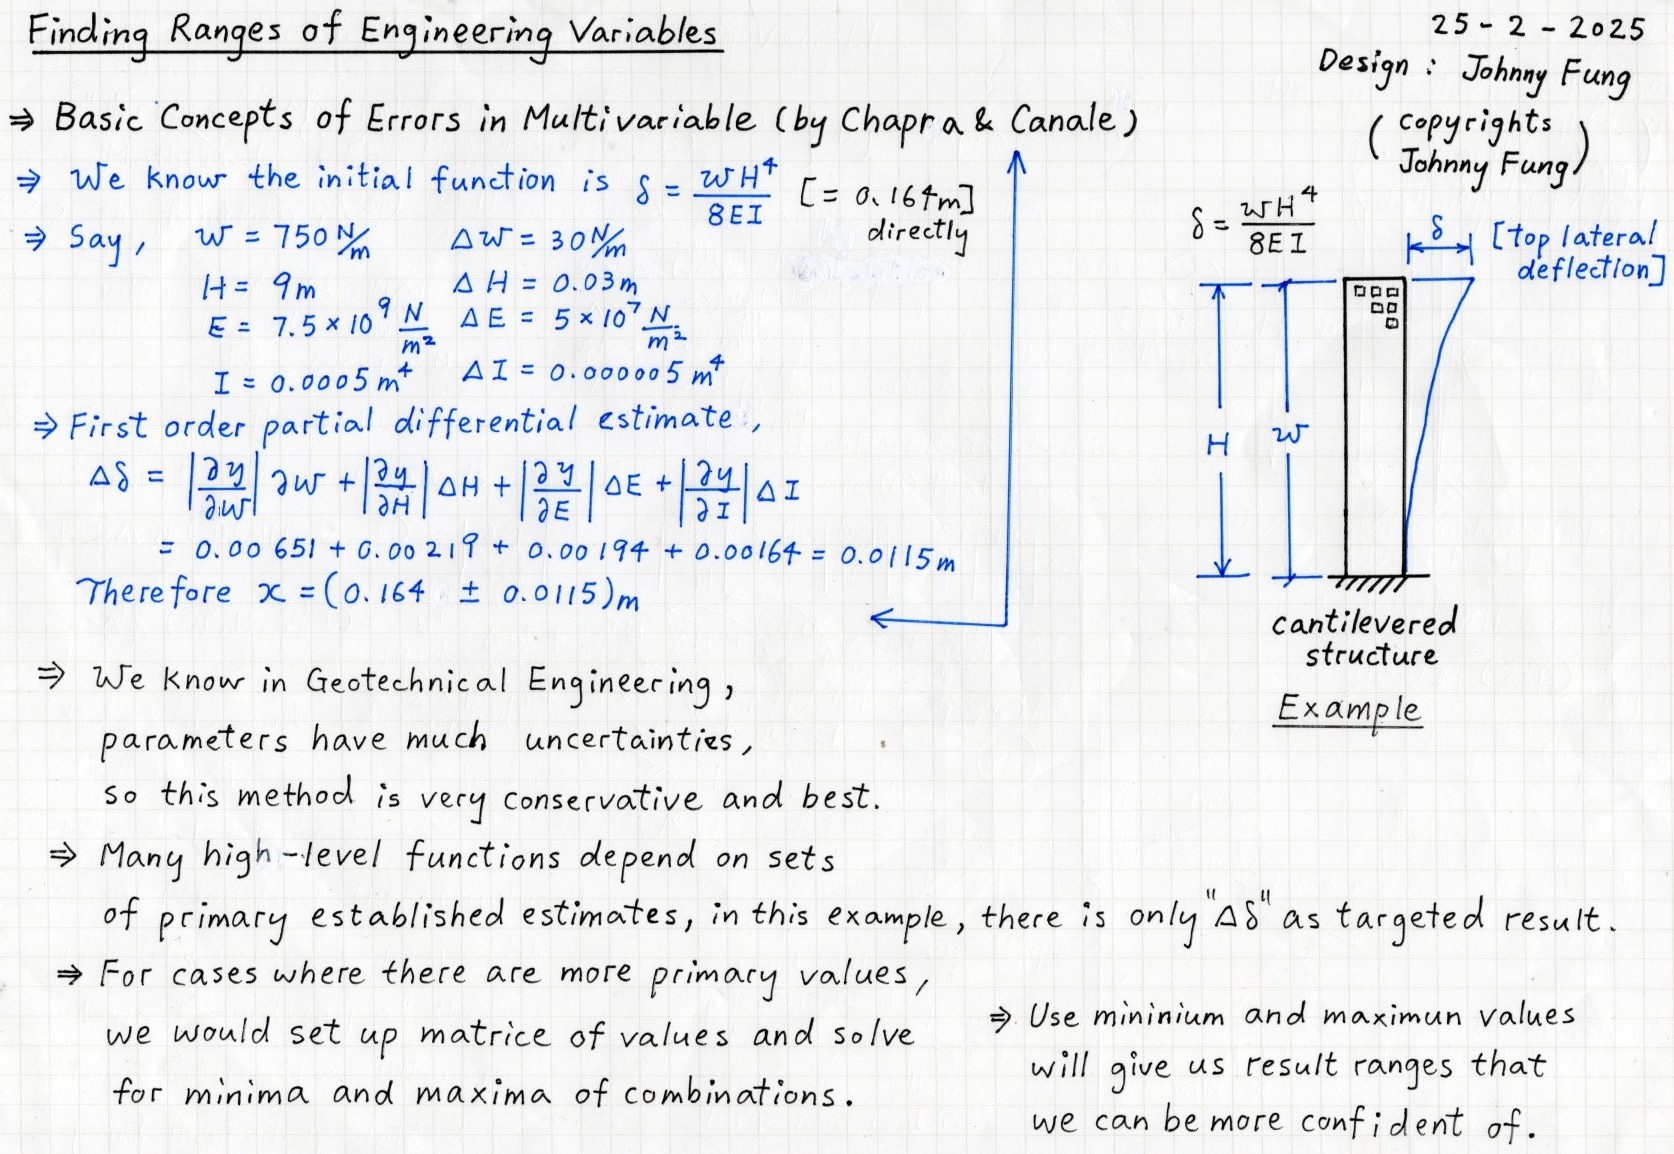 Finding Ranges of Engineering Variables
25 - 2 - 2025
Design : Johnny Fung
( copyrights
Johnny Fung )
⇒ Basic Concepts of Errors in Multivariable (by Chapra & Canale)
⇒ We know the initial function is δ = wH⁴/8EI [= 0.164m]
directly
⇒ Say, w = 750 N/m Δw = 30 N/m
H = 9m ΔH = 0.03m
E = 7.5 × 10⁹ N/m² ΔE = 5 × 10⁷ N/m²
I = 0.0005 m⁴ ΔI = 0.000005 m⁴
⇒ First order partial differential estimate,
Δδ = |∂y/∂w| ∂w + |∂y/∂H| ΔH + |∂y/∂E| ΔE + |∂y/∂I| ΔI
= 0.00651 + 0.00219 + 0.00194 + 0.00164 = 0.0115m
Therefore x = (0.164 ± 0.0115)m
δ = wH⁴/8EI
δ [top lateral
deflection]
H w
cantilevered
structure
Example
⇒ We know in Geotechnical Engineering,
parameters have much uncertainties,
so this method is very conservative and best.
⇒ Many high-level functions depend on sets
of primary established estimates, in this example, there is only "Δδ" as targeted result.
⇒ For cases where there are more primary values,
we would set up matrice of values and solve
for minima and maxima of combinations.
⇒ Use mininium and maximun values
will give us result ranges that
we can be more confident of.